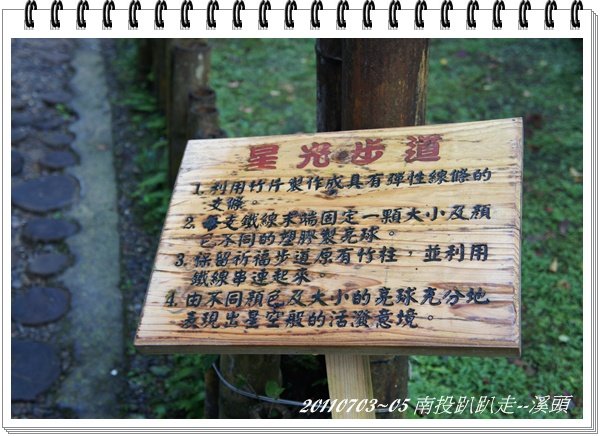 星光步道
1. 利用竹片製作成具有彈性線條的
支條。
2. 每支鐵線末端固定一顆大小及顏
色不同的塑膠製亮球。
3. 保留祈福步道原有竹柱，並利用
鐵線串連起來。
4. 由不同顏色及大小的亮球充分地
表現出星空般的活潑意境。
20110703~05 南投趴趴走--溪頭